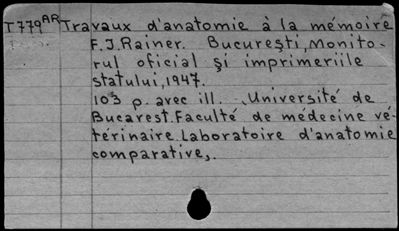 T779AR Travaux d'anatomie à la mémoire
F.J.Rainer. Bucureşti, Monito-
rul oficial şi imprimeriile
statului, 1947.
103 p. avec ill. Université de
Bucarest. Faculté de médecine vé-
térinaire. Laboratoire d'anatomie
comparative,.